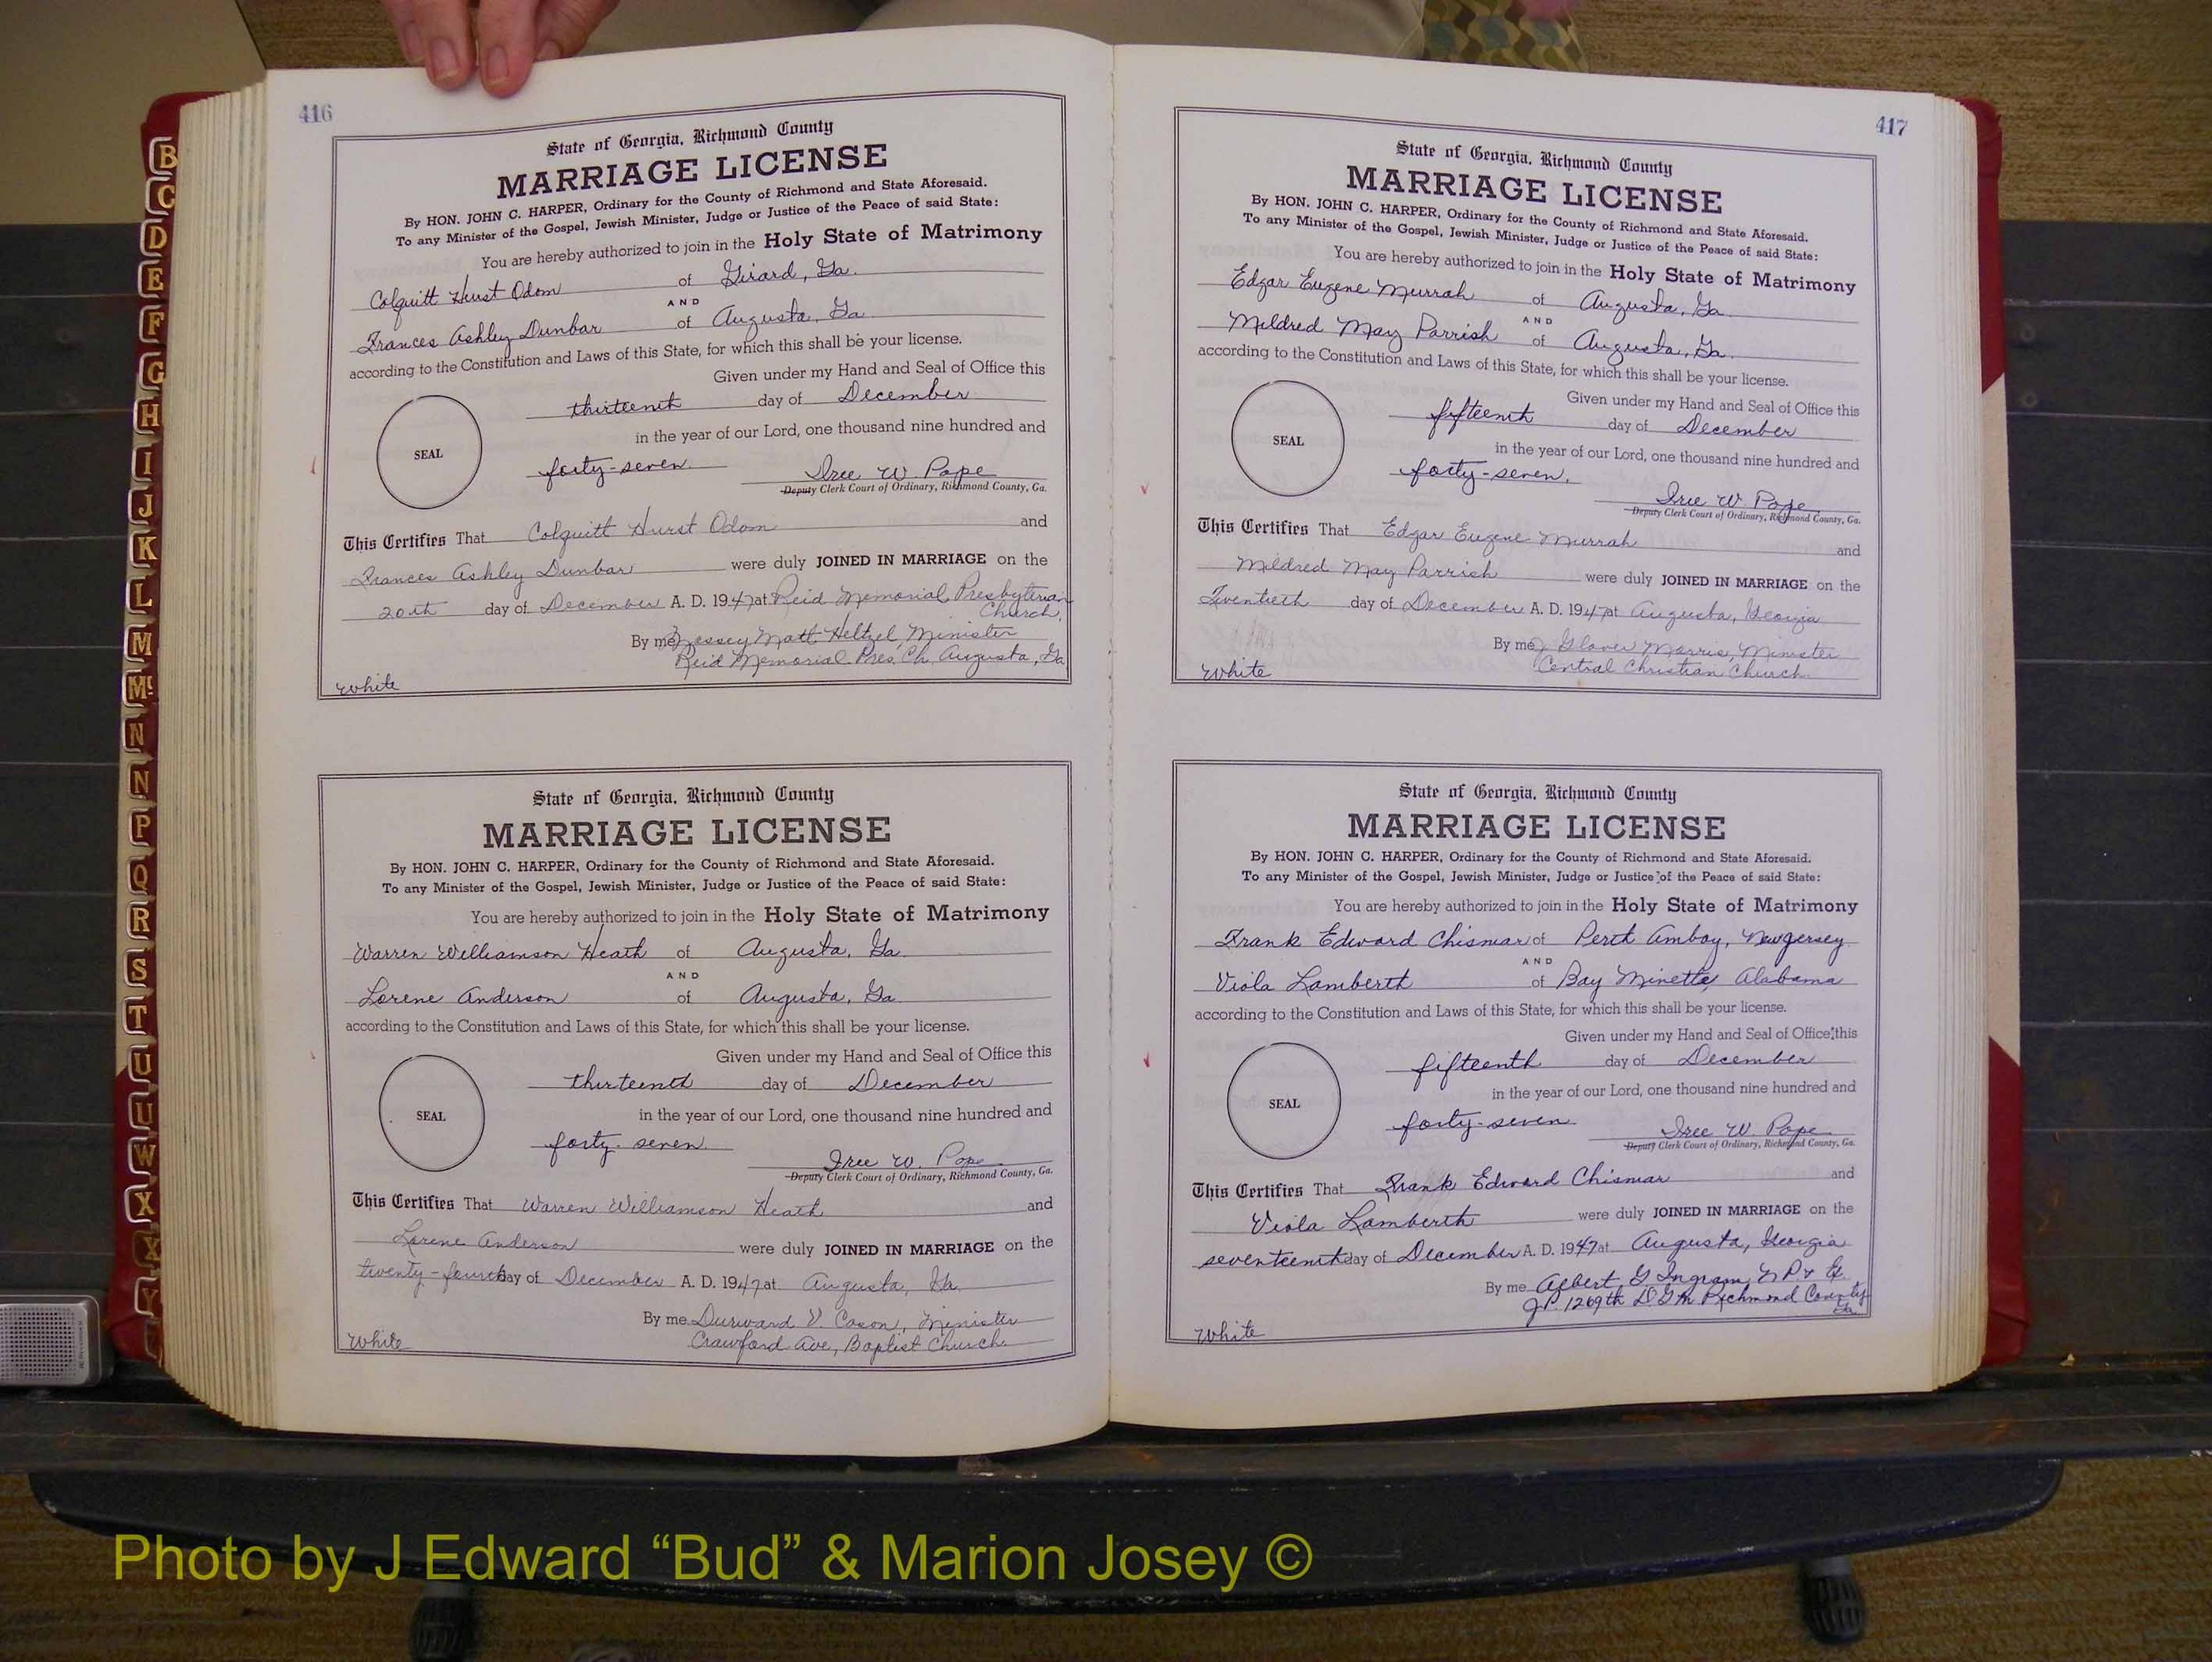 416
State of Georgia, Richmond County
MARRIAGE LICENSE
By HON. JOHN C. HARPER, Ordinary for the County of Richmond and State Aforesaid.
To any Minister of the Gospel, Jewish Minister, Judge or Justice of the Peace of said State:
You are hereby authorized to join in the Holy State of Matrimony
Colquitt Hurst Odom of Girard, Ga.
AND
Frances Ashley Dunbar of Augusta, Ga
according to the Constitution and Laws of this State, for which this shall be your license.
Given under my Hand and Seal of Office this
thirteenth day of December
in the year of our Lord, one thousand nine hundred and
SEAL
forty-seven. Iree W. Pope
Deputy Clerk Court of Ordinary, Richmond County, Ga.
This Certifies That Colquitt Hurst Odom and
Frances Ashley Dunbar were duly JOINED IN MARRIAGE on the
20th day of December A. D. 1947 at Reid Memorial Presbyterian
Church.
By me Massey Matt Heltzel, Minister
Reid Memorial Pres. Ch, Augusta, Ga
White
State of Georgia, Richmond County
MARRIAGE LICENSE
By HON. JOHN C. HARPER, Ordinary for the County of Richmond and State Aforesaid.
To any Minister of the Gospel, Jewish Minister, Judge or Justice of the Peace of said State:
You are hereby authorized to join in the Holy State of Matrimony
Warren Williamson Heath of Augusta, Ga.
AND
Lorene Anderson of Augusta, Ga
according to the Constitution and Laws of this State, for which this shall be your license.
Given under my Hand and Seal of Office this
thirteenth day of December
in the year of our Lord, one thousand nine hundred and
SEAL
forty-seven. Iree W. Pope
Deputy Clerk Court of Ordinary, Richmond County, Ga.
This Certifies That Warren Williamson Heath and
Lorene Anderson were duly JOINED IN MARRIAGE on the
twenty-fourth day of December A. D. 1947 at Augusta, Ga.
By me Durward V. Cason, Minister
Crawford Ave, Baptist Church.
White
417
State of Georgia, Richmond County
MARRIAGE LICENSE
By HON. JOHN C. HARPER, Ordinary for the County of Richmond and State Aforesaid.
To any Minister of the Gospel, Jewish Minister, Judge or Justice of the Peace of said State:
You are hereby authorized to join in the Holy State of Matrimony
Edgar Eugene Murrah of Augusta, Ga
AND
Mildred May Parrish of Augusta, Ga.
according to the Constitution and Laws of this State, for which this shall be your license.
Given under my Hand and Seal of Office this
fifteenth day of December
in the year of our Lord, one thousand nine hundred and
SEAL
forty-seven. Iree W. Pope
Deputy Clerk Court of Ordinary, Richmond County, Ga.
This Certifies That Edgar Eugene Murrah and
Mildred May Parrish were duly JOINED IN MARRIAGE on the
Twentieth day of December A. D. 1947 at Augusta, Georgia
By me J. Glover Morris, Minister
Central Christian Church.
White
State of Georgia, Richmond County
MARRIAGE LICENSE
By HON. JOHN C. HARPER, Ordinary for the County of Richmond and State Aforesaid.
To any Minister of the Gospel, Jewish Minister, Judge or Justice of the Peace of said State:
You are hereby authorized to join in the Holy State of Matrimony
Frank Edward Chismar of Perth Amboy, New Jersey
AND
Viola Lamberth of Bay Minette, Alabama
according to the Constitution and Laws of this State, for which this shall be your license.
Given under my Hand and Seal of Office this
fifteenth day of December
in the year of our Lord, one thousand nine hundred and
SEAL
forty-seven. Iree W. Pope
Deputy Clerk Court of Ordinary, Richmond County, Ga.
This Certifies That Frank Edward Chismar and
Viola Lamberth were duly JOINED IN MARRIAGE on the
seventeenth day of December A. D. 1947 at Augusta, Georgia
By me Albert G Ingram, N P & Ex
J.P. 1269th D G M Richmond County
Ga.
White
B
C
D
E
F
G
H
I
J
K
L
M
Mc
N
N
P
Q
R
S
T
U
U
W
X
X
Y
Photo by J Edward “Bud” & Marion Josey ©